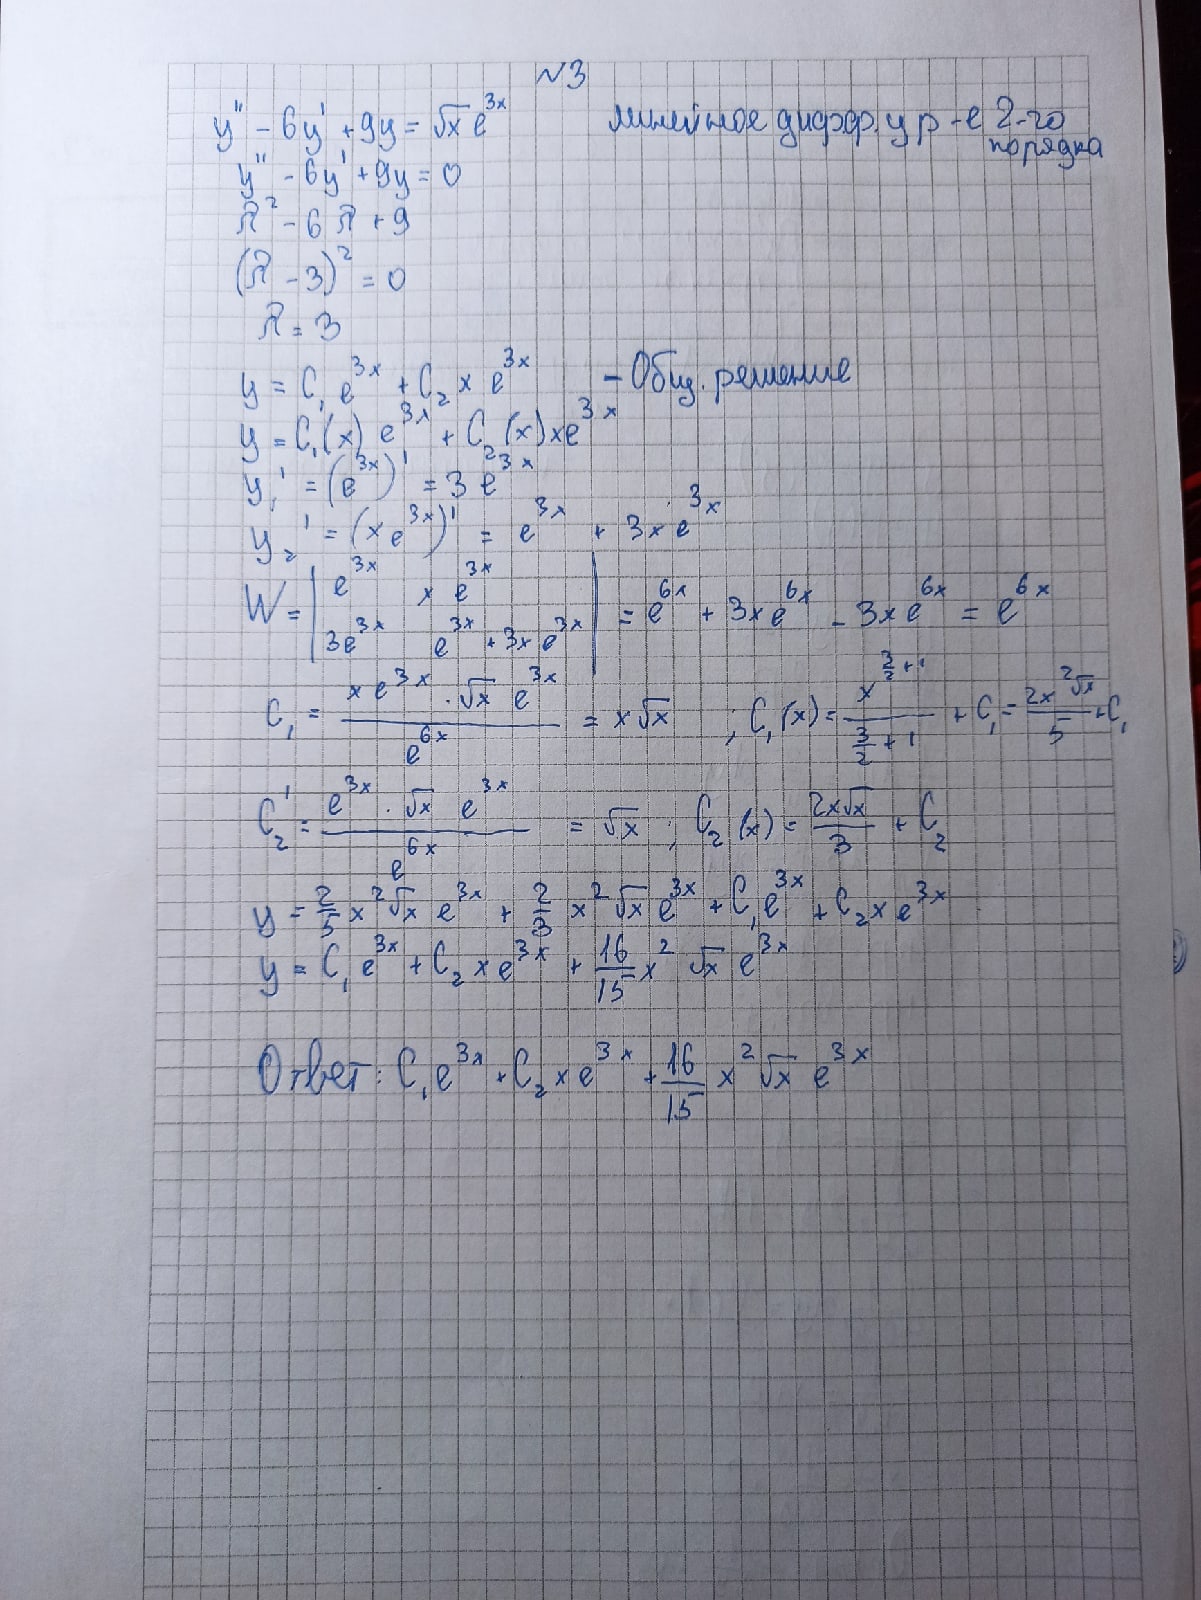 №3
y'' - 6y' + 9y = √x e^{3x} линейное дифферр. ур-е 2-го порядка
y'' - 6y' + 9y = 0
λ² - 6λ + 9
(λ - 3)² = 0
λ = 3
y = C₁e^{3x} + C₂xe^{3x} - Общ. решение
y = C₁(x)e^{3x} + C₂(x)xe^{3x}
y₁' = (e^{3x})' = 3e^{3x}
y₂' = (xe^{3x})' = e^{3x} + 3xe^{3x}
W = |e^{3x} xe^{3x}; 3e^{3x} e^{3x} + 3xe^{3x}| = e^{6x} + 3xe^{6x} - 3xe^{6x} = e^{6x}
C₁ = (xe^{3x} · √x e^{3x})/e^{6x} = x√x ; C₁(x) = x^{3/2+1}/(3/2+1) + C₁ = 2x²√x/5 + C₁
C₂' = (e^{3x} · √x e^{3x})/e^{6x} = √x ; C₂(x) = 2x√x/3 + C₂
y = 2/5 x²√x e^{3x} + 2/3 x²√x e^{3x} + C₁e^{3x} + C₂xe^{3x}
y = C₁e^{3x} + C₂xe^{3x} + 16/15 x² √x e^{3x}
Ответ: C₁e^{3x} + C₂xe^{3x} + 16/15 x² √x e^{3x}